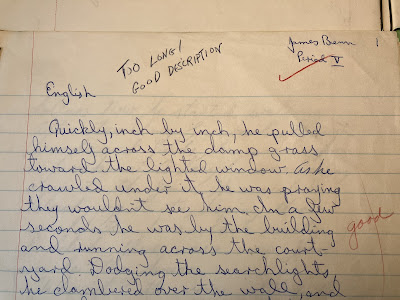 TOO LONG!
GOOD DESCRIPTION
James Benn 1
Period V
English
Quickly, inch by inch, he pulled
himself across the damp grass
toward the lighted window. As he
crawled under it he was praying
they wouldn't see him. In a few
seconds he was by the building
good
and running across the court-
yard. Dodging the searchlights,
he clambered over the wall, and